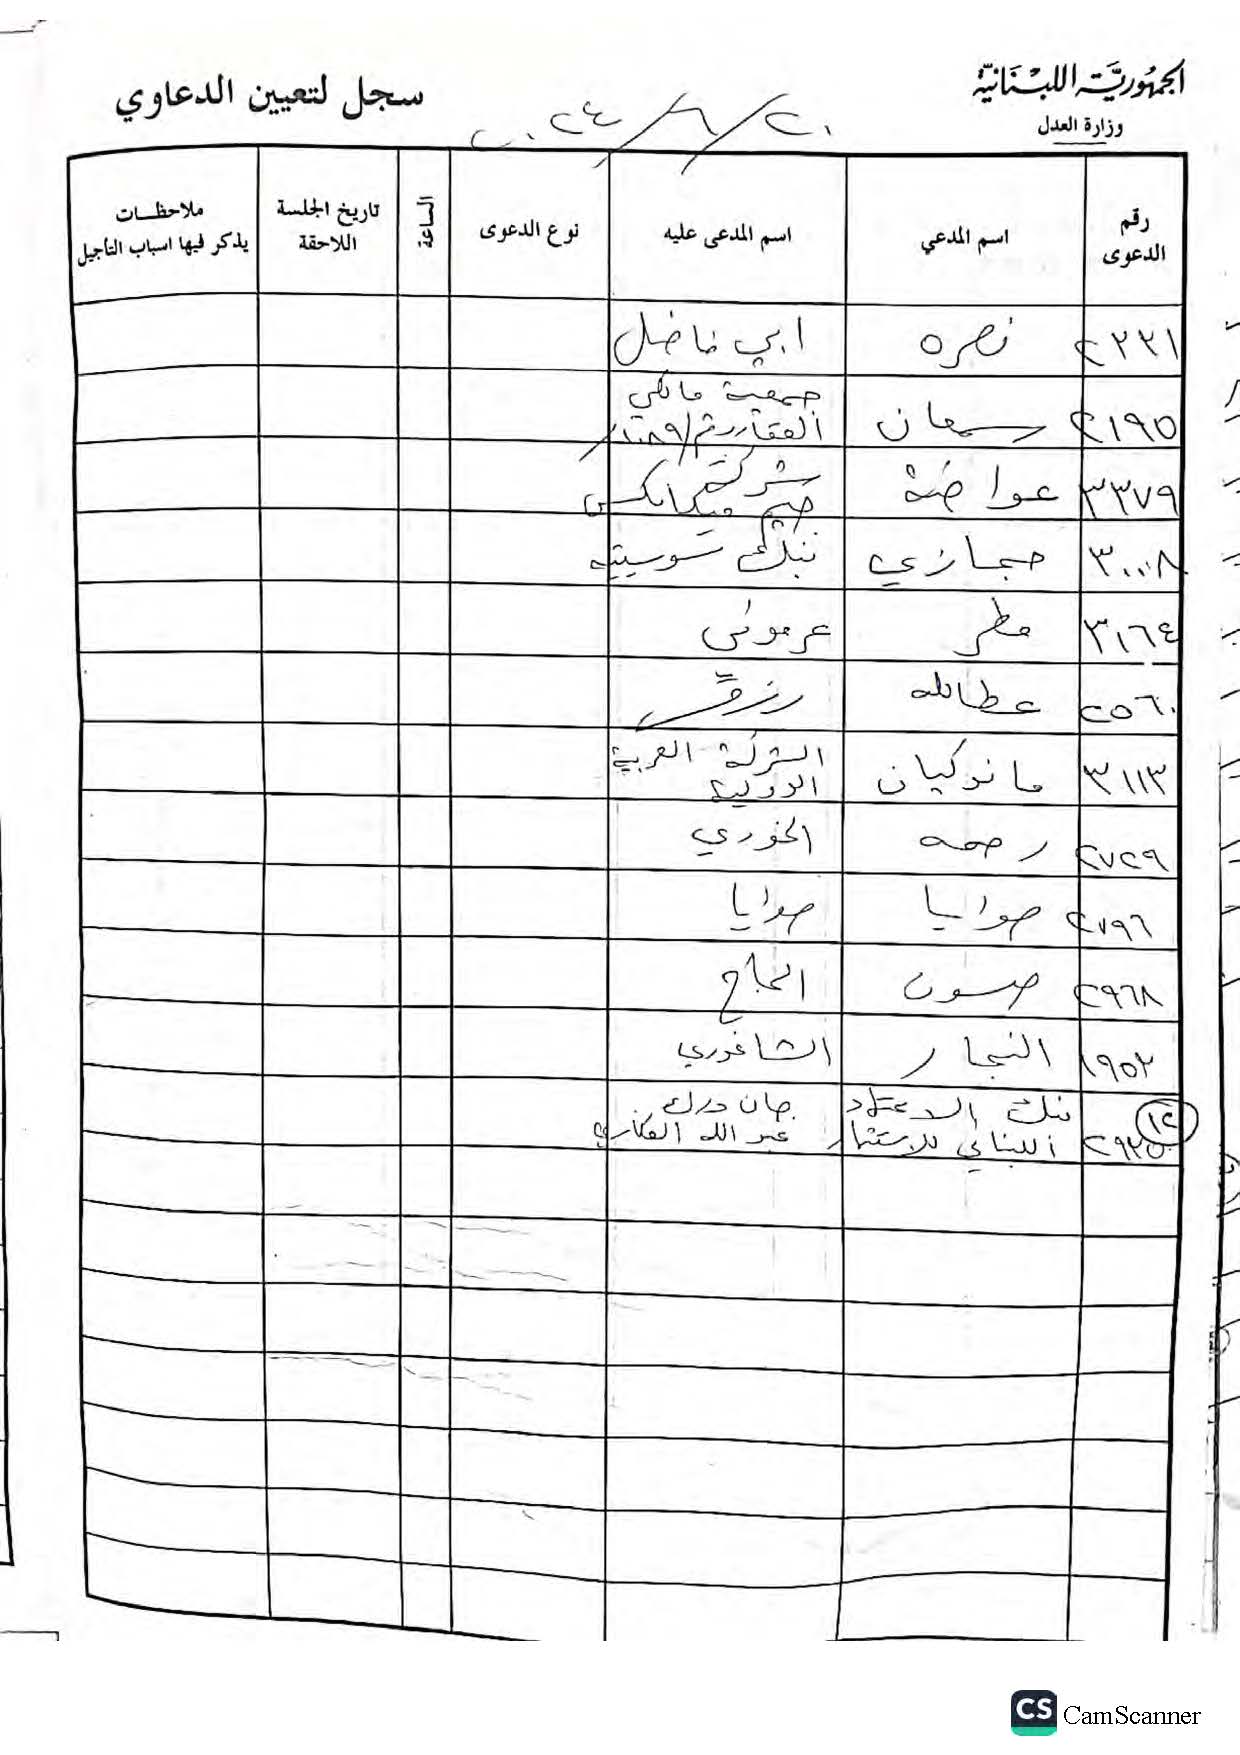 الجمهورية اللبنانية
وزارة العدل
سجل لتعيين الدعاوي
٢٠٢٤/٦/٢٠
رقم الدعوى | اسم المدعي | اسم المدعى عليه | نوع الدعوى | الساعة | تاريخ الجلسة اللاحقة | ملاحظات يذكر فيها اسباب التأجيل
٢٢٢١ نصره ابي فاضل
٢١٩٥ سمعان جمعية مالكي
العقار رقم
٣٣٧٩ عواضة شركة
ميكانكس
٣٠٠٨ حجازي بنك سوسيتيه
٣١٦٤ مطر عرموني
٢٥٦٠ عطالله رزق
٣١١٣ مانوكيان الشركة العربية
الدولية
٢٧٢٩ رحمه الخوري
٢٧٩٦ صوايا صوايا
٢٩٦٨ حسون الحاج
١٩٥٢ النجار الشاغوري
١٢
بنك الاعتماد جان درك
اللبناني للاستثمار عبد الله
CS CamScanner